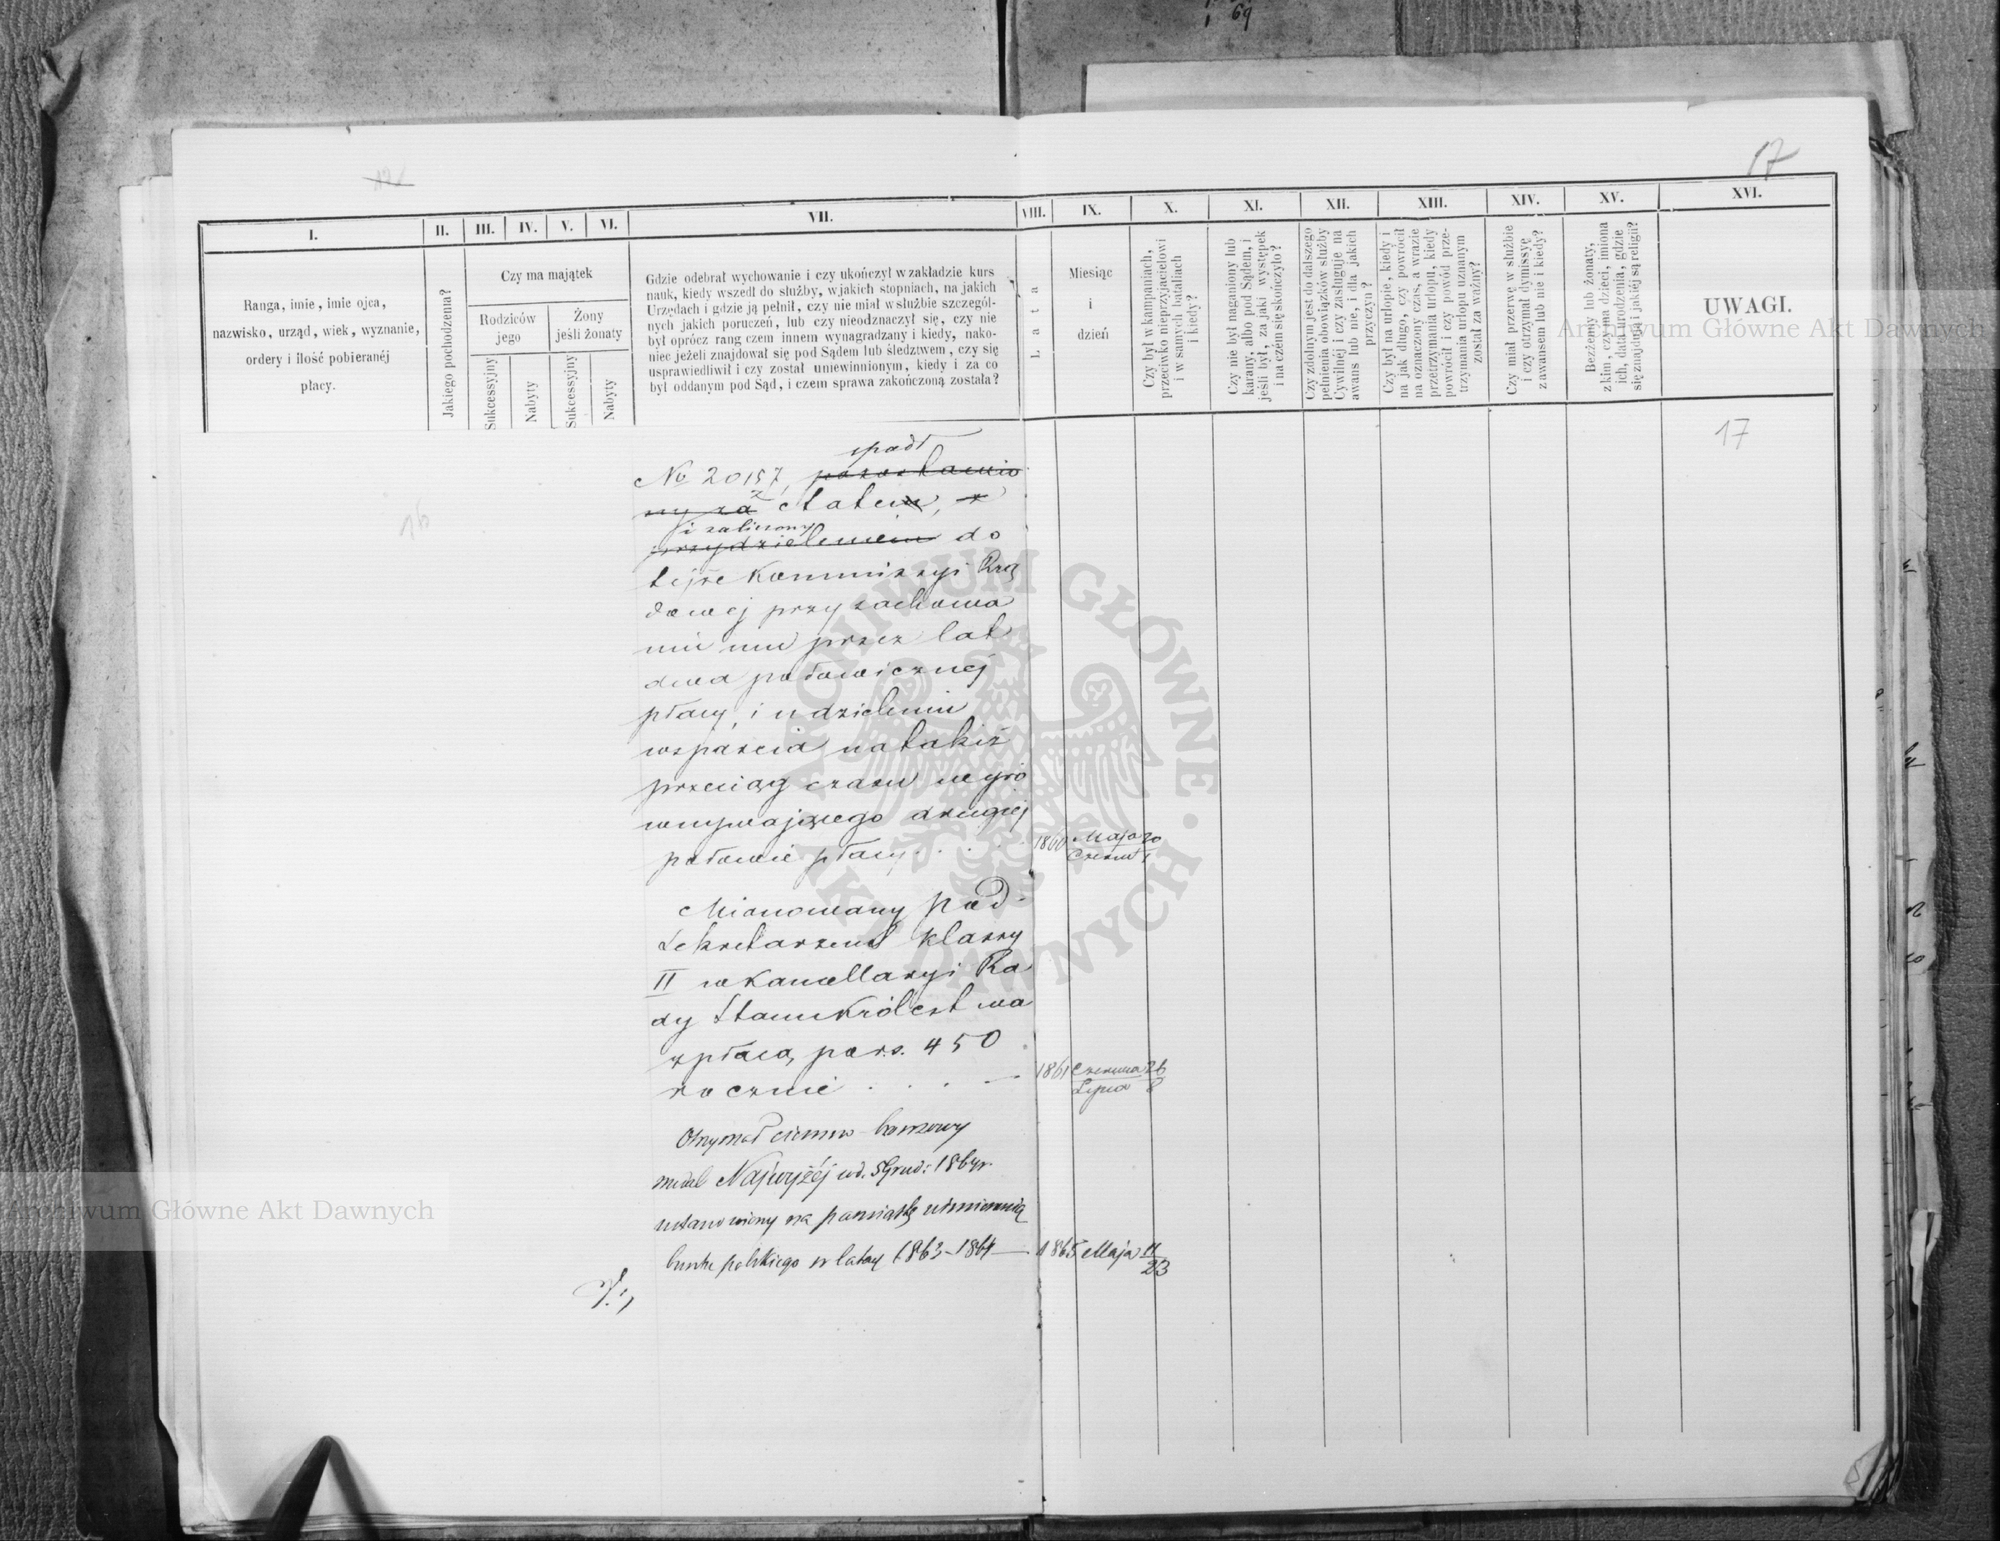 69
17
I.
II.
III.
IV.
V.
VI.
VII.
VIII.
IX.
X.
XI.
XII.
XIII.
XIV.
XV.
XVI.
Ranga, imie, imie ojca,
nazwisko, urząd, wiek, wyznanie,
ordery i ilość pobieranéj
płacy.
Jakiego pochodzenia?
Czy ma majątek
Rodziców
jego
Żony
jeśli żonaty
Sukcessyjny
Nabyty
Sukcessyjny
Nabyty
Gdzie odebrał wychowanie i czy ukończył w zakładzie kurs
nauk, kiedy wszedł do służby, w jakich stopniach, na jakich
Urzędach i gdzie ją pełnił, czy nie miał w służbie szczegól-
nych jakich poruczeń, lub czy nieodznaczył się, czy nie
był oprócz rang czem innem wynagradzany i kiedy, nako-
niec jeżeli znajdował się pod Sądem lub śledztwem, czy się
usprawiedliwił i czy został uniewinnionym, kiedy i za co
był oddanym pod Sąd, i czem sprawa zakończoną została?
Lata
Miesiąc
i
dzień
Czy był w kampaniach,
przeciwko nieprzyjacielowi
i w samych bataliach
i kiedy?
Czy nie był naganiony lub
karany, albo pod Sądem, i
jeśli był, za jaki występek
i na czém się skończyło?
Czy zdolnym jest do dalszego
pełnienia obowiązków służby
Cywilnéj i czy zasługuje na
awans lub nie, i dla jakich
przyczyn?
Czy był na urlopie, kiedy i
na jak długo, czy powrócił
na oznaczony czas, a w razie
przetrzymania urlopu, kiedy
powrócił i czy powód prze-
trzymania urlopu uznanym
został za ważny?
Czy miał przerwę w służbie
i czy otrzymał dymissyę
z awansem lub nie i kiedy?
Bezżenny lub żonaty,
z kim, czy ma dzieci, imiona
ich, data urodzenia, gdzie
się znajdują i jakiéj są religii?
UWAGI.
17
16
spadł
No 20157, pozostawio
ny za z etatem, z
i zaliczony
przydzieleniem do
tejże Kommissyi Rzą
dowej przy zachowa
niu mu przez lat
dwa połowicznej
płacy, i udzieleniu
wsparcia na takiż
przeciąg czasu wyró
wnywającego drugiej
połowie płacy . . . . 1860 Maja 20
Czerw 1
Mianowany Pod-
Sekretarzem klassy
II w Kancellaryi Ra
dy Stanu Królestwa
z płacą po r.s. 450
rocznie . . . — 1861 Czerwca 26
Lipca 8
Otrzymał ciemno-bronzowy
medal Najwyżéj ud. 5 Grud: 1864 r.
ustanowiony na pamiątkę uśmierzenia
buntu polskiego w latach 1863-1864 — 1865 Maja 11
23
Archiwum Główne Akt Dawnych
Archiwum Główne Akt Dawnych
ARCHIWUM GŁÓWNE AKT DAWNYCH